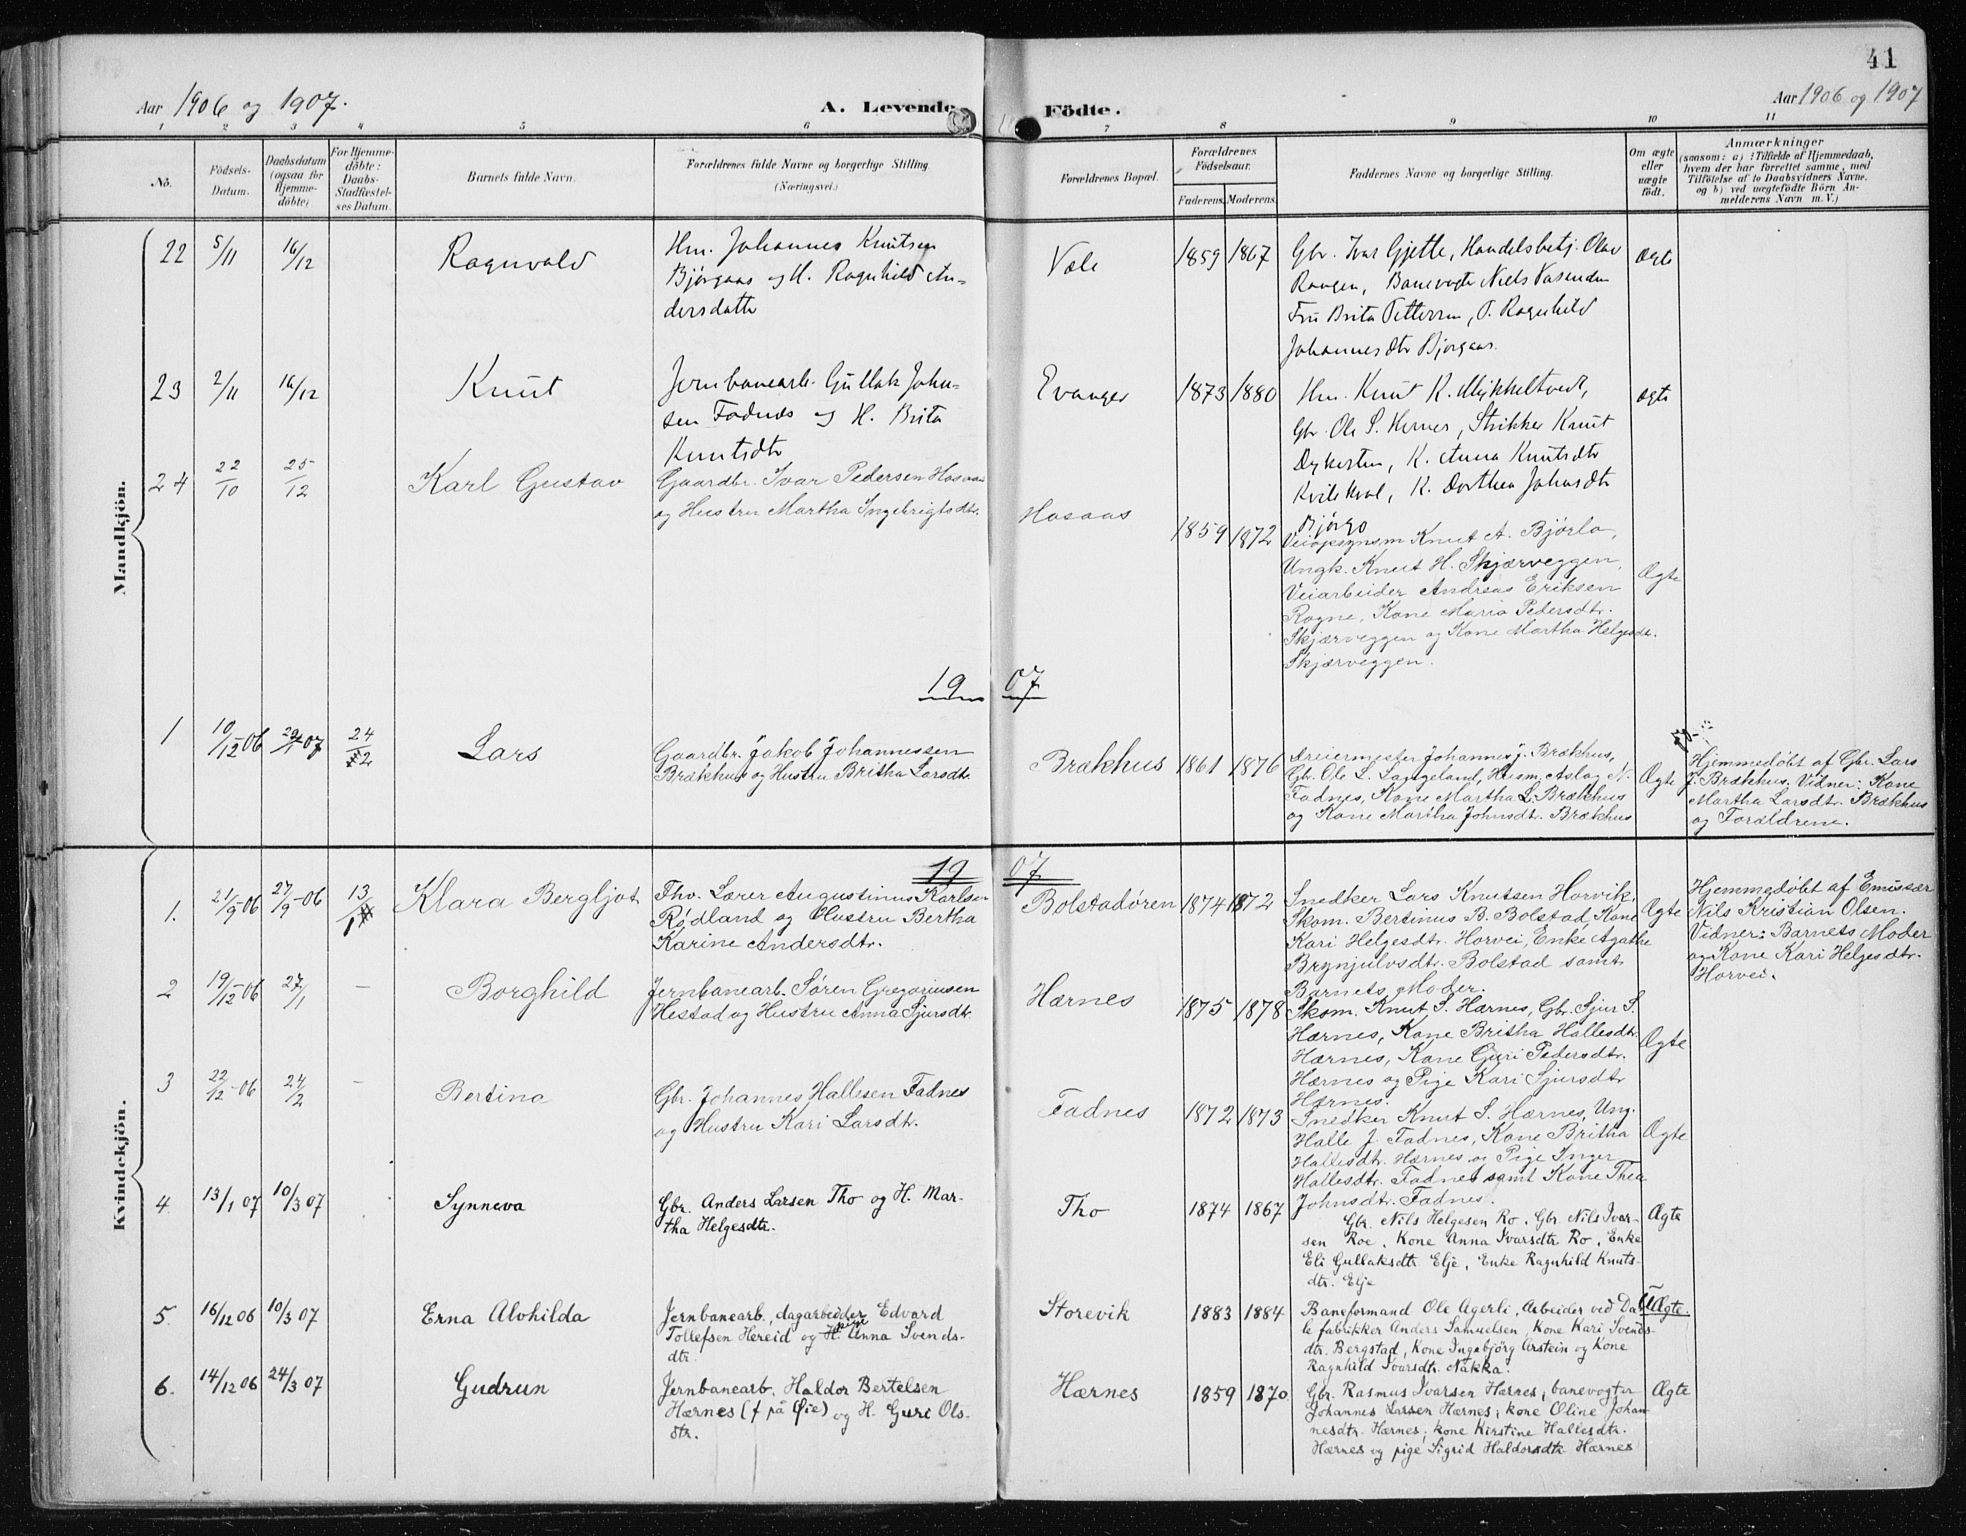 41
Aar 1906 og 1907.
A. Levende Födte.
Aar 1906 og 1907
1 2 3 4 5 6 7 8 9 10 11
No.
Födsels-
Datum.
Daabsdatum
(ogsaa for
Hjemme-
döbte)
For Hjemme-
döbte:
Daabs-
Stadfæstel-
ses Datum.
Barnets fulde Navn.
Forældrenes fulde Navne og borgerlige Stilling.
(Næringsvei.)
Forældrenes Bopæl.
Forældrenes
Födselsaar.
Faderens. Moderens.
Faddernes Navne og borgerlige Stilling.
Om ægte
eller
uægte
födt.
Anmærkninger
(saasom: a) i Tilfælde af Hjemmedaab,
hvem der har forrettet samme, med
Tilföielse af to Daabsvidners Navne.
og b) ved uægtefödte Börn An-
melderens Navn m. V.)
Mandkjön.
22 5/11 16/12 Ragnvald
Hm. Johannes Knutsen
Bjørgaas og H. Ragnhild An-
dersdatter
Væle 1859 1867
Gbr. Ivar Gjelle, Handelsbetj. Olav
Rongen, Banevogter Niels Vasenden
Fru Brita Pettersen, P. Ragnhild
Johannesdtr Bjørgaas.
ægte
23 2/11 16/12 Knut
Jernbanearb. Gullak John-
sen Fadnes og H. Brita
Knutsdtr
Evanger 1873 1880
Hm. Knut K. Mykkeltvedt,
Gbr. Ole S. Hernes, Strikker Knut
Dykesten, K. Anna Knutsdtr
Kvilekval, K. Dorthea Johnsdtr
Bjørgo
ægte
24 22/10 25/12 Karl Gustav
Gaardbr. Ivar Pedersen Hosaas
og Hustru Martha Ingebrigtsdtr.
Hosaas 1859 1872
Veiopsynsm Knut A. Bjørlo,
Ungk. Knut H. Skjærveggen,
Veiarbeider Andreas Eriksen
Rogne, Kone Maria Pedersdtr.
Skjærveggen og Kone Martha Helgesdtr.
Skjærveggen.
Ægte
19 07
1 10/12-06 29/1-07 24/2 Lars
Gaardbr. Jakob Johannessen
Brækhus og Hustru Britha Larsdtr.
Brækhus 1861 1876
Dreiermester Johannes J. Brækhus,
Gbr. Ole L. Langeland, Husm. Aslag N.
Fadnes, Kone Martha L. Brækhus
og Kone Martha Johnsdtr. Brækhus
Ægte
Hjemmedøbt af Gbr. Lars
J. Brækhus. Vidner: Kone
Martha Larsdtr. Brækhus
og Forældrene.
Kvindekjön.
19 07
1. 21/9-06 27/9-06 13/1 Klara Bergljot
Fhv. Lærer Augustinus Karlsen
Rødland og Hustru Bertha
Karine Andersdtr.
Bolstadøren 1874 1872
Snedker Lars Knutsen Horvik,
Skom. Bertinus B. Bolstad, Kone
Kari Helgesdtr. Horvei, Enke Agathe
Brynjulvsdtr. Bolstad samt
Barnets Moder.
Ægte
Hjemmedøbt af Emissær
Nils Kristian Olsen.
Vidner: Barnets Moder
og Kone Kari Helgesdtr.
Horvei.
2 19/12-06 27/1 – Borghild
Jernbanearb. Søren Gregoriusen
Hestad og Hustru Anna Sjursdtr.
Hærnes 1875 1878
Skom. Knut S. Hærnes, Gbr. Sjur S.
Hærnes, Kone Britha Hallesdtr.
Hærnes, Kone Guri Pedersdtr.
Hærnes og Pige Kari Sjursdtr
Hærnes.
Ægte
3 22/12-06 24/2 – Bertina
Gbr. Johannes Hallesen Fadnes
og Hustru Kari Larsdtr.
Fadnes 1872 1873
Snedker Knut S. Hærnes, Ung.
Halle J. Fadnes, Kone Britha
Hallesdtr. Hærnes og Pige Inger
Hallesdtr. Fadnes samt Kone Thea
Johnsdtr. Fadnes.
Ægte
4. 13/1 07 10/3 07 Synneva
Gbr. Anders Larsen Tho og H. Mar-
tha Helgesdtr.
Tho 1874 1867
Gbr. Nils Helgesen Ro, Gbr Nils Ivar-
sen Roe, Kone Anna Ivarsdtr Ro, Enke
Eli Gullaksdtr. Elje, Enke Ragnhild Knuts-
dtr. Elje
Ægte
5. 16/12 06 10/3 07 Erna Alvhilda
Jernbanearb., dagarbeider Edvard
Tollefsen Hereid og H. pige Anna Svends-
dtr.
Storevik 1883 1884
Baneformand Ole Agerli, Arbeider ved Da-
le fabrikker Anders Samuelsen, Kone Kari Svends-
dtr. Bergstad, Kone Ingebjörg Arstein og Kone
Ragnhild Ivarsdtr. Nakka.
UÆgte.
6. 14/12 06 24/3 07 Gudrun
Jernbanearb. Haldor Bertelsen
Hærnes (f på Øie) og H. Guri Ols-
dtr.
Hærnes 1859 1870
Gbr. Rasmus Ivarsen Hærnes, banevogter
Johannes Larsen Hærnes, kone Oline Johan-
nesdtr. Hærnes, kone Kirstine Hallesdtr.
Hærnes og pige Sigrid Haldorsdtr Hærnes
Ægte